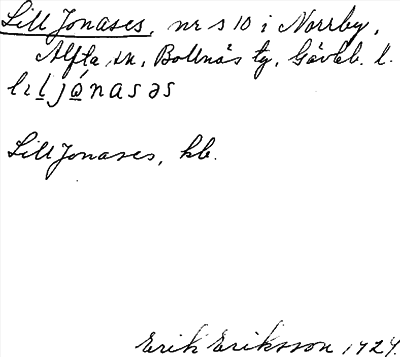 Lill Jonases, nr s 10 i Norrby,
Alfta sn, Bollnäs tg, Gävleb. l.
Lill Jonases, kb.
Erik Eriksson 1924.